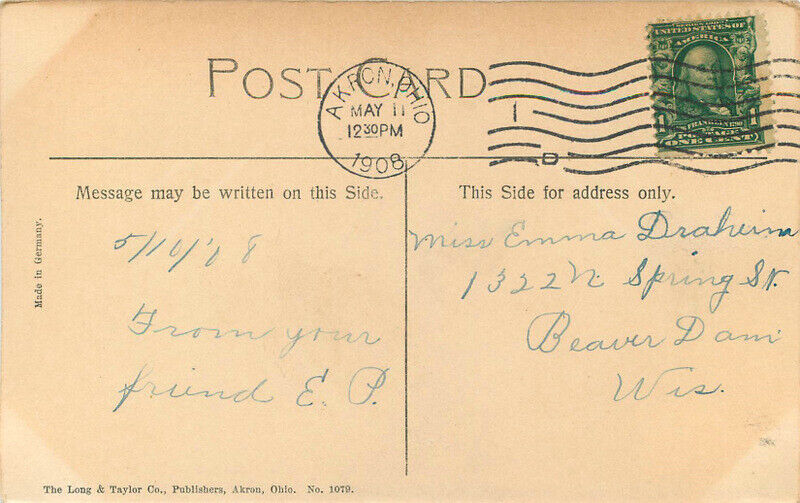 POST CARD
AKRON, OHIO
MAY 11
12 30 PM
1908
1
D
UNITED STATES OF
AMERICA
1 FRANKLIN 1
POSTAGE
ONE CENT
Message may be written on this Side.
5/10/'08
From your
friend E. P.
This Side for address only.
Miss Emma Draheim
1322 N. Spring St.
Beaver Dam
Wis.
Made in Germany.
The Long & Taylor Co., Publishers, Akron, Ohio. No. 1079.